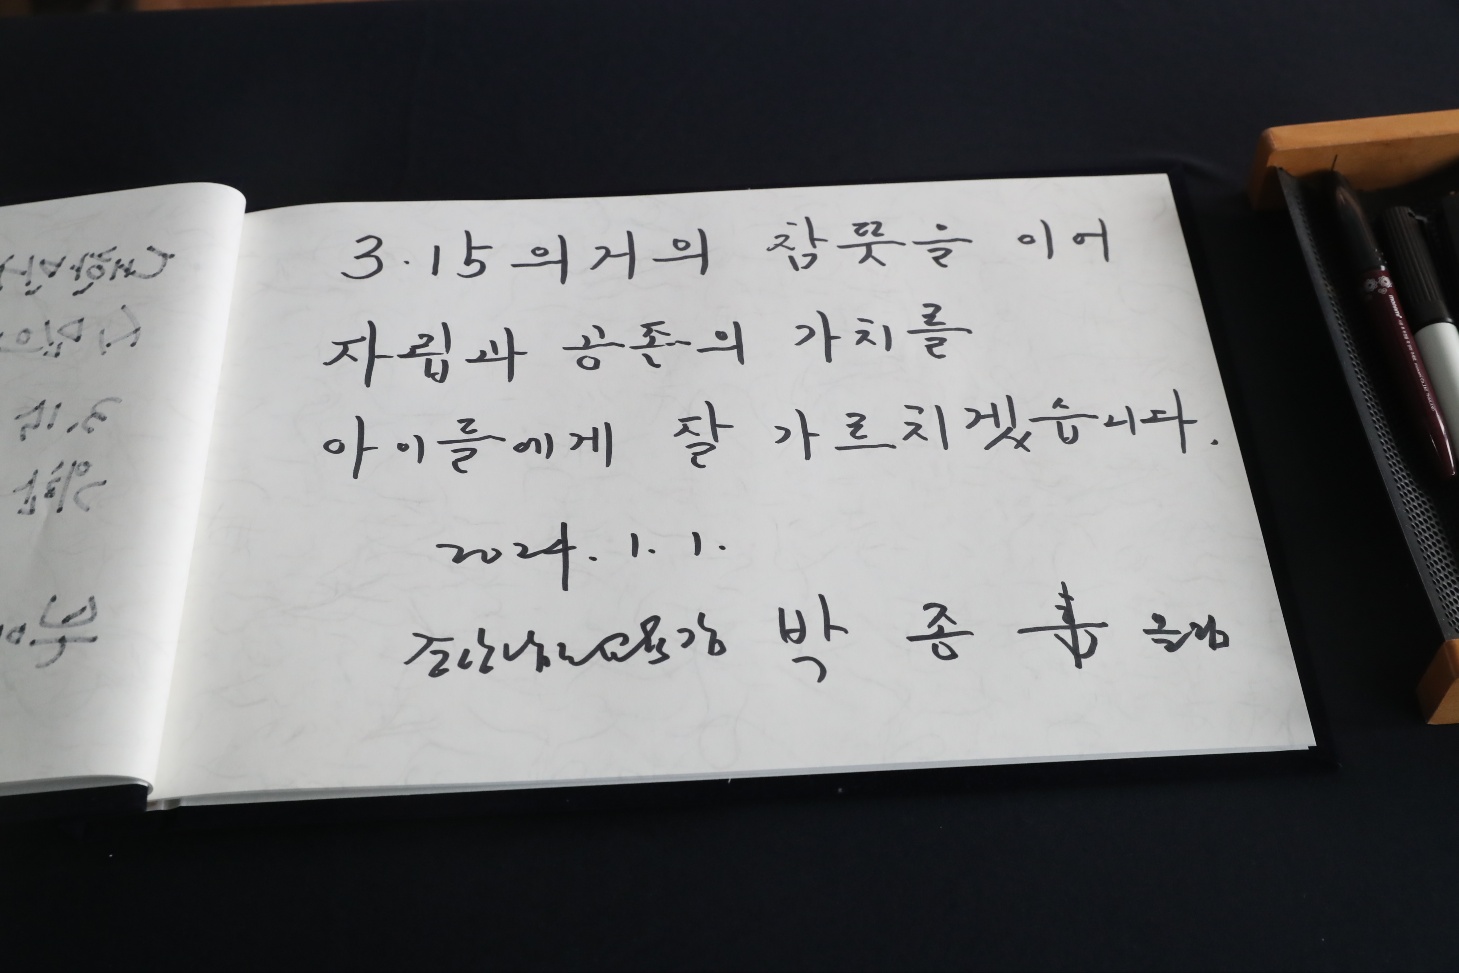 3.15의거의 참뜻을 이어
자립과 공존의 가치를
아이들에게 잘 가르치겠습니다.
2024. 1. 1.
박 종 훈